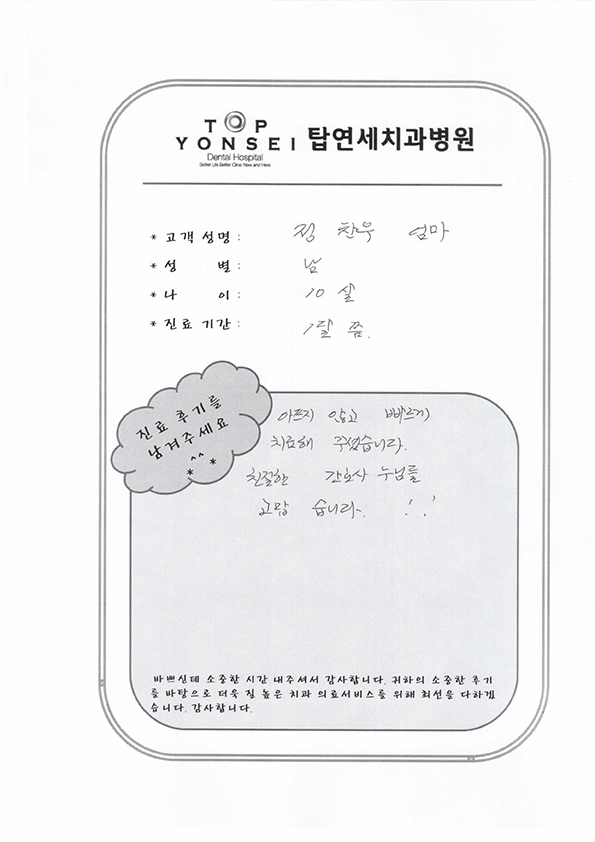 TOP
YONSEI 탑연세치과병원
Dental Hospital
Better Life Better Clinic Now and Here
* 고객성명 : 정 찬욱 엄마
* 성 별 : 남
* 나 이 : 10 살
* 진료기간 : 1달 쯤.
진료 후기를
남겨주세요
^^
* *
아프지 않고 빠르게
치료해 주셨습니다.
친절한 간호사 누님들
고맙 습니다. ! . !
바쁘신데 소중한 시간 내주셔서 감사합니다. 귀하의 소중한 후기
를 바탕으로 더욱 질 높은 치과 의료서비스를 위해 최선을 다하겠
습니다. 감사합니다.